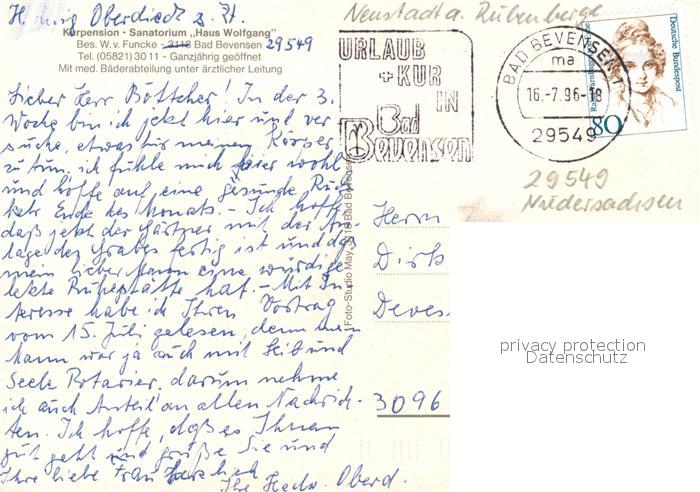 Oberdieck z. Zt.
Kurpension - Sanatorium „Haus Wolfgang"
Bes. W. v. Funcke - 3118 Bad Bevensen
29549
Tel. (05821) 3011 - Ganzjährig geöffnet
Mit med. Bäderabteilung unter ärztlicher Leitung
Lieber Herr Böttcher! In der 3.
Woche bin ich jetzt hier und ver
suche, etwas für meinen Körper
zu tun. ich fühle mich hier wohl
und hoffe auf eine gesunde Rück
kehr Ende des Monats. - Ich hoffe
daß jetzt der Gärtner mit der An-
lage des Grabes fertig ist und daß
mein lieber Mann eine würdige
letzte Ruhestätte hat. - Mit In
teresse habe ich Ihren Vortrag
vom 15. Juli gelesen, denn mein
Mann war ja auch mit Leib und
Seele Rotarier, darum nehme
ich auch Anteil an allen Nachrich-
ten. Ich hoffe, daß es Ihnen
gut geht und grüße Sie und
Ihre liebe Frau herzlich
Ihre Oberd.
Foto-Studio May, 3118 Bad Bevensen
Neustadt a. Rübenberge
URLAUB
+ KUR
IN
Bad
Bevensen
BAD BEVENSEN 1
ma
16.-7.96-18
29549
Deutsche Bundespost
80
29549
Niedersachsen
Herrn
Dirk
3096
privacy protection
Datenschutz